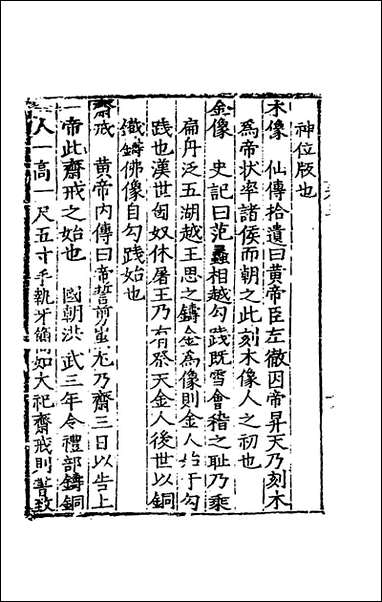 神位版也
木像　仙傳拾遺曰黄帝臣左徹因帝昇天乃刻木
為帝状率諸侯而朝之此刻木像人之初也
金像　史記曰范蠡相越勾踐既雪會稽之恥乃乘
扁舟泛五湖越王思之鑄金為像則金人始于勾
踐也漢世匈奴休屠王乃有祭天金人後世以銅
鐵鑄佛像自勾踐始也
齋戒　黄帝内傳曰帝誓剪蚩尤乃齋三日以告上
帝此齋戒之始也　國朝洪武三年令禮部鑄銅
人一高一尺五寸手執牙簡如大祀齋戒則書致